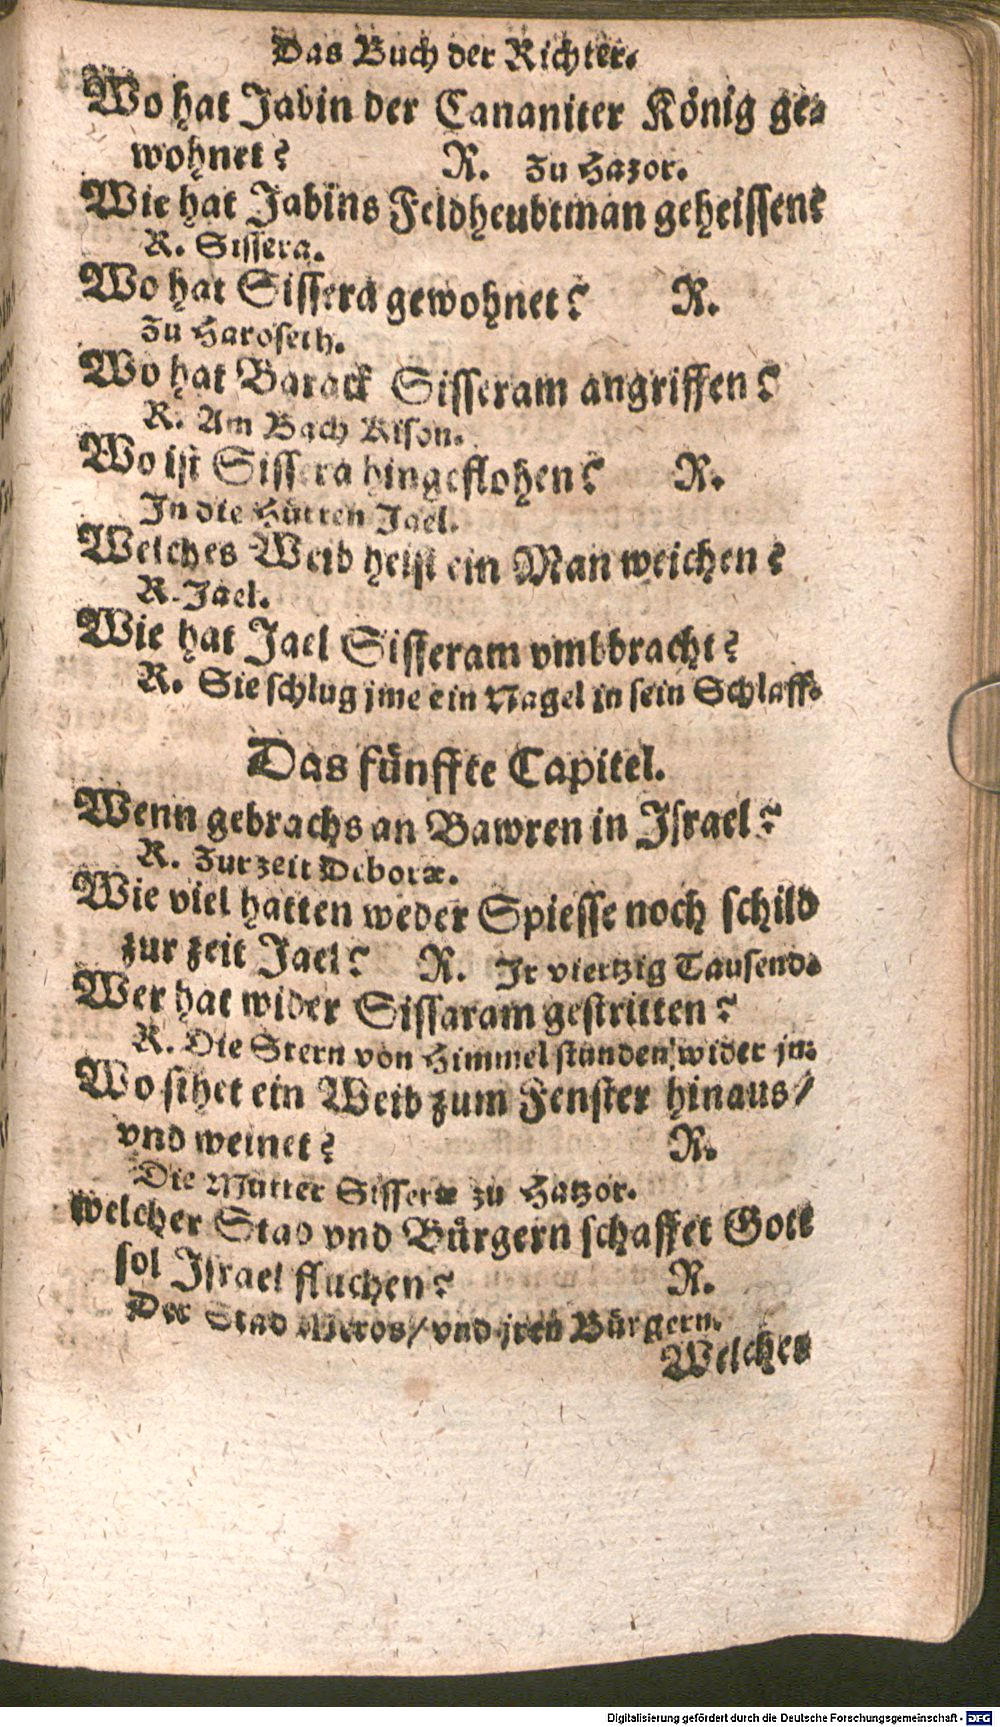 Das Buch der Richter.
Wo hat Jabin der Cananiter König ge-
wohnet? R. Zu Hazor.
Wie hat Jabins Feldheubtman geheissen?
R. Sissera.
Wo hat Sissera gewohnet? R.
Zu Haroseth.
Wo hat Barack Sisseram angriffen?
R. Am Bach Kison.
Wo ist Sissera hingeflohen? R.
In die Hütten Jael.
Welches Weib heist ein Man weichen?
R. Jael.
Wie hat Jael Sisseram vmbbracht?
R. Sie schlug jme ein Nagel in sein Schlaff.
Das fünffte Capitel.
Wenn gebrachs an Bawren in Israel?
R. Zur zeit Deboræ.
Wie viel hatten weder Spiesse noch schild
zur zeit Jael? R. Jr viertzig Tausend.
Wer hat wider Sissaram gestritten?
R. Die Stern von Himmel stunden wider jn.
Wo sihet ein Weib zum Fenster hinaus/
vnd weinet? R.
Die Mutter Sisseræ zu Hatzor.
welcher Stad vnd Bürgern schaffet Gott
sol Israel fluchen? R.
Der Stad Meros/ vnd jren Bürgern.
Welches
Digitalisierung gefördert durch die Deutsche Forschungsgemeinschaft - DFG